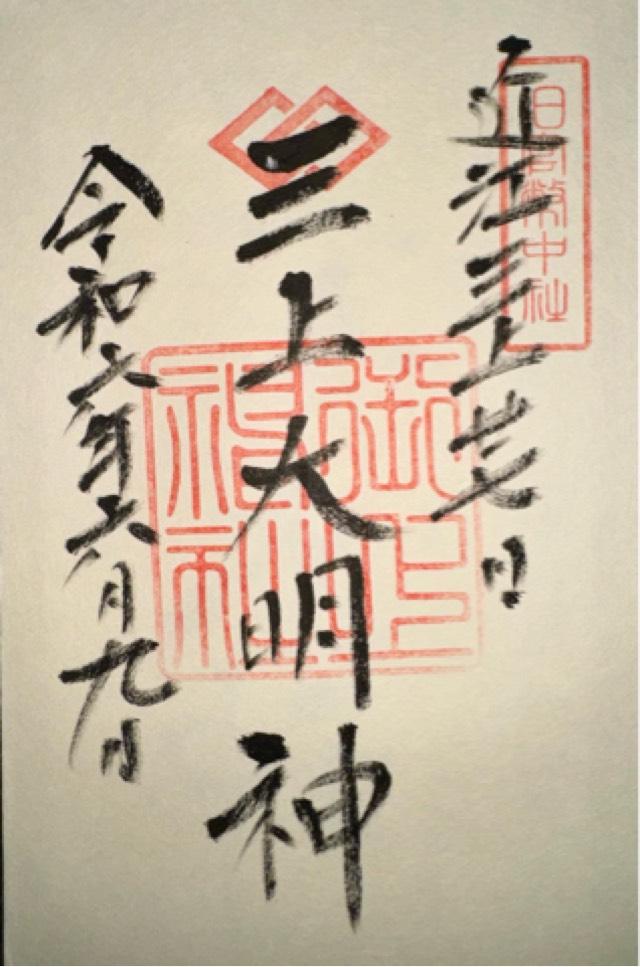 旧官幣中社
近江三上廿七日
三上大明神
御上
神社
令和六年六月九日